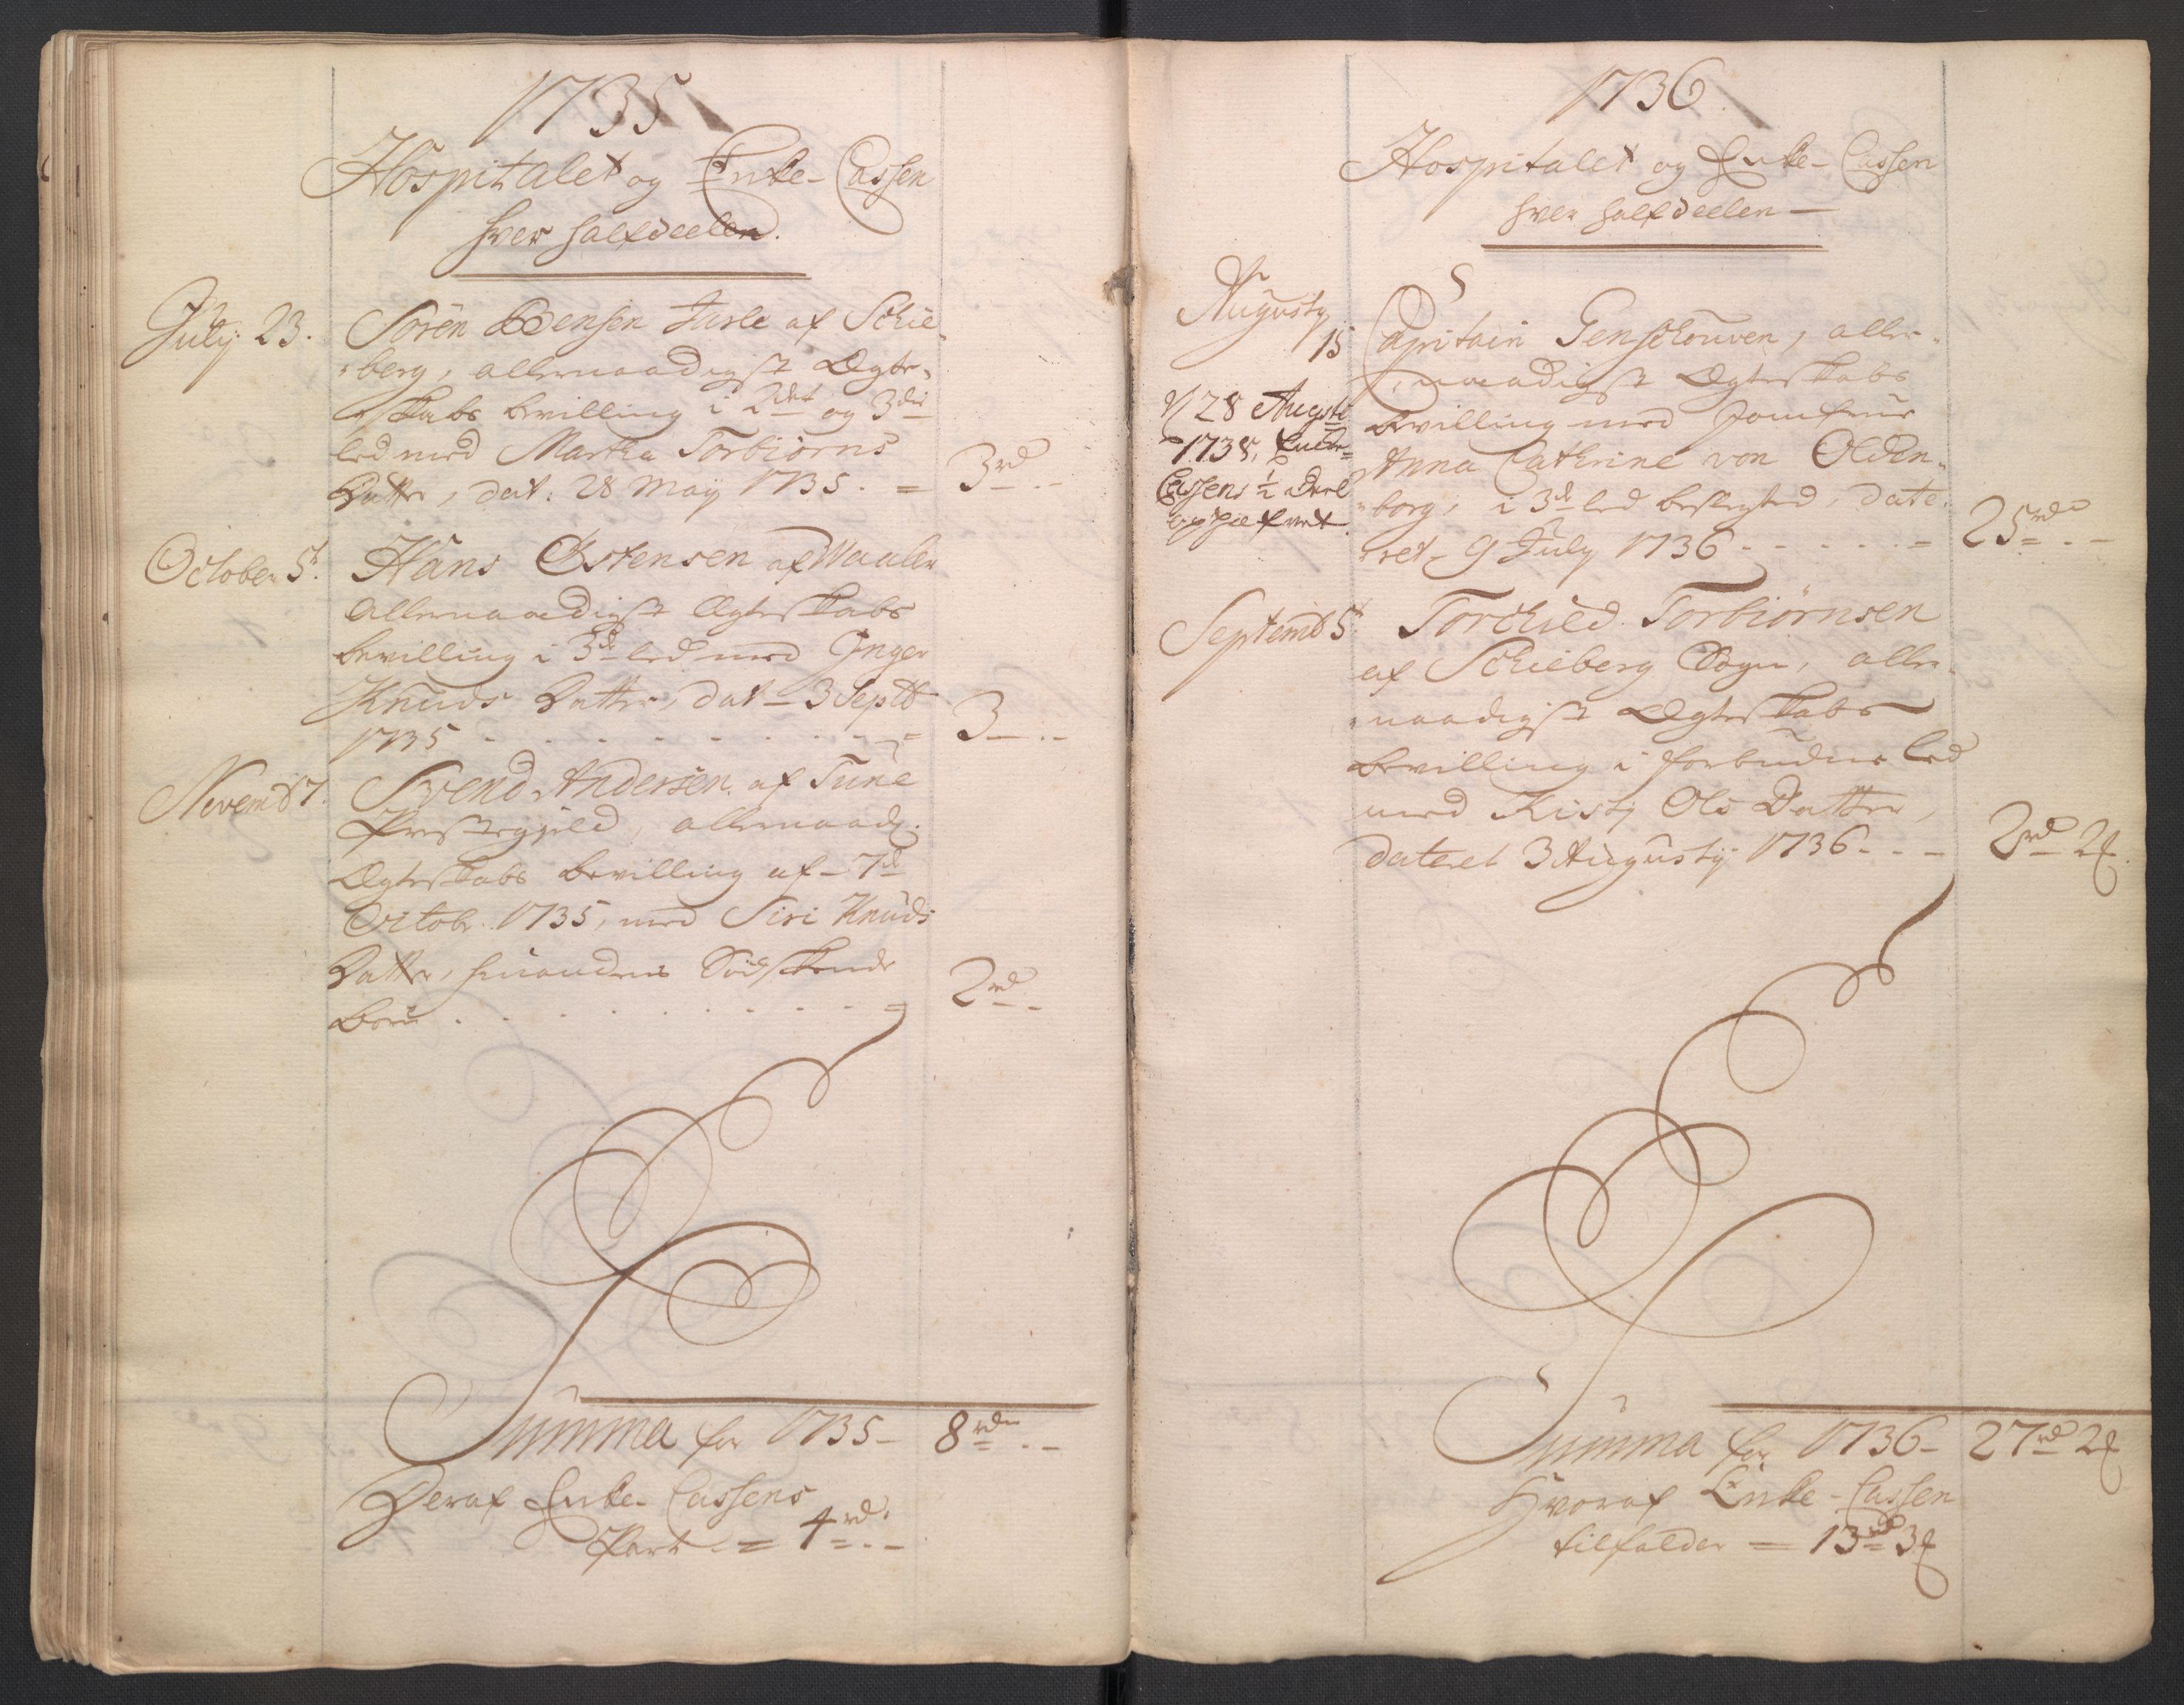 1735
Hospitalet og Enke-Cassen
hver halfdeelen.
July 23. Sören Bensen Jusle af Schie-
berg, allernaadigst Ægte-
skabs bevilling i 2det og 3die
led med Martha Torbiörns
Datter, dat: 28 May 1735. = 3rd
October 5t. Hans Östensen af Waaler
Allernaadigst Ægteskabs
bevilling i 3de led med Inger
Knuds Datter, dat 3 Septb
1735 3
Novemb 7. Svend Andersen af Tune
Prestegield, allernaadg.
Ægteskabs bevilling af 7de
Octobr. 1735, med Siri Knuds
Datter, hinandens Södskende
börn 2rd
Summa for 1735 8rdr
Deraf Enke Cassens
Part = 4rd.
1736
Hospitalet og Enke-Cassen
hver halfdeelen
Augusty
15 Capitain Genschouven, aller-
naadigst Ægteskabs
bevilling med Jomfrue
Anna Cathrine von Olden-
borg, i 3de led beslegted, date-
ret 9 July 1736 = 25rdr
28 Augusti
1738, Enke-
Cassens 1/2 Deel
Septemb 5t. Torchild Torbiörnsen
af Schieberg Sogn, aller-
naadigst Ægteskabs
bevilling i forbudne led
med Kisty Ols Datter,
dateret 3 Augusty 1736 2rd 2ß.
Summa for 1736 27rd 2ß
Hvoraf Enke-Cassen
tilfalder = 13rd 3ß